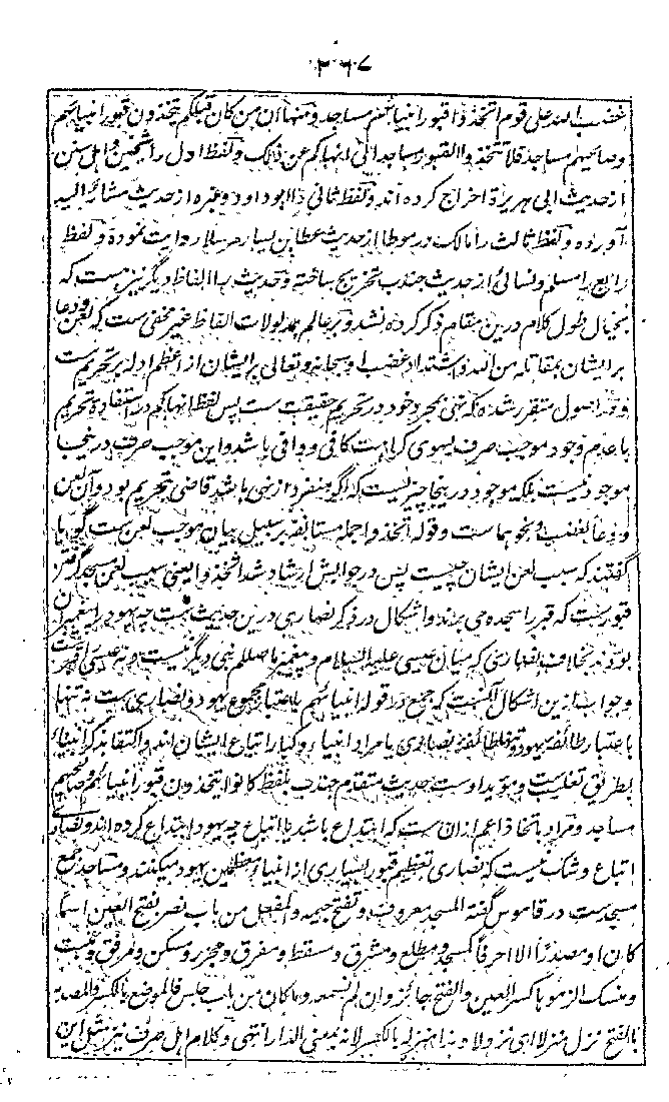 ۲۶۷
غضب الله علی قوم اتخذوا قبور انبیائهم مساجد ومنها ان من کان قبلکم یتخذون قبور انبیائهم
وصالحیهم مساجد فلا تتخذوا القبور مساجد انی انهاکم عن ذلک ولفظ اول را شیخین واهل سنن
از حدیث ابی هریرة اخراج کرده اند ولفظ ثانی را ابو داود وغیره از حدیث مشار الیه
آورده ولفظ ثالث را مالک در موطا از حدیث عطا بن یسار مرسلا روایت نموده ولفظ
رابع را مسلم ونسائی از حدیث جندب تخریج ساخته وحدیث را الفاظ دیگر نیز هست که
بخیال طول کلام درین مقام ذکر کرده نشد وبر عالم بمدلولات الفاظ غیر مخفی ست که لعن ودعا
بر ایشان بمقاتله من الله واشتداد غضب او سبحانه وتعالی بر ایشان از اعظم ادله بر تحریم ست
ودر اصول متقرر شده که نهی بمجرد خود در تحریم حقیقت ست پس لفظ انهاکم در استفاده تحریم
با عدم وجود موجب صرف بسوی کراهت کافی ووافی باشد واین موجب صرف در ینجا
موجود نیست بلکه موجود در ینجا چیزیست که اگر منفرد از نهی باشد قاضی بتحریم بود وآن لعن
ودعا بغضب ونحوهما ست وقوله اتخذوا جمله مستانفه بر سبیل بیان موجب لعن ست گویا
گفتند که سبب لعن ایشان چیست پس در جوابش ارشاد شد اتخذوا یعنی سبب لعن مسجد گرفتن
قبور ست که قبر را سجده می برند واشکال در ذکر نصاری درین حدیث ست چه یهود را پیغمبران
بودند بخلاف نصاری که میان عیسی علیه السلام وپیغمبر ما صلعم نبی دیگر نیست ونه عیسی را قبر ست
وجواب ازین اشکال آنست که جمع در قوله انبیائهم باعتبار مجموع یهود ونصاری ست نه تنها
باعتبار طائفه نصاری یا مراد انبیاء وکبار اتباع ایشان اند واکتفا بذکر انبیاء
بطریق تغلیب ست ومؤید اوست حدیث متقدم جندب بلفظ کانوا یتخذون قبور انبیائهم وصالحیهم
مساجد ومراد باتخاذ اعم ازان ست که ابتداع باشد یا اتباع چه یهود ابتداع کرده اند ونصاری
اتباع وشک نیست که نصاری تعظیم قبور بسیاری از انبیاء معظمین یهود میکنند ومساجد جمع
مسجد ست در قاموس گفته المسجد معروف وتفتح جیمه والمفعل من باب نصر بفتح العین اسما
کان او مصدرا الا احرفا کمسجد ومطلع ومشرق ومسقط ومفرق ومجزر ومسکن ومرفق ومنبت
ومنسک الزموها کسر العین والفتح جائز وان لم نسمعه وما کان من باب جلس فالموضع بالکسر والمصدر
بالفتح نزل منزلا ای نزولا وهذا منزله بالکسر لانه بمعنی الدار انتهی وکلام اهل صرف نیز مثل این